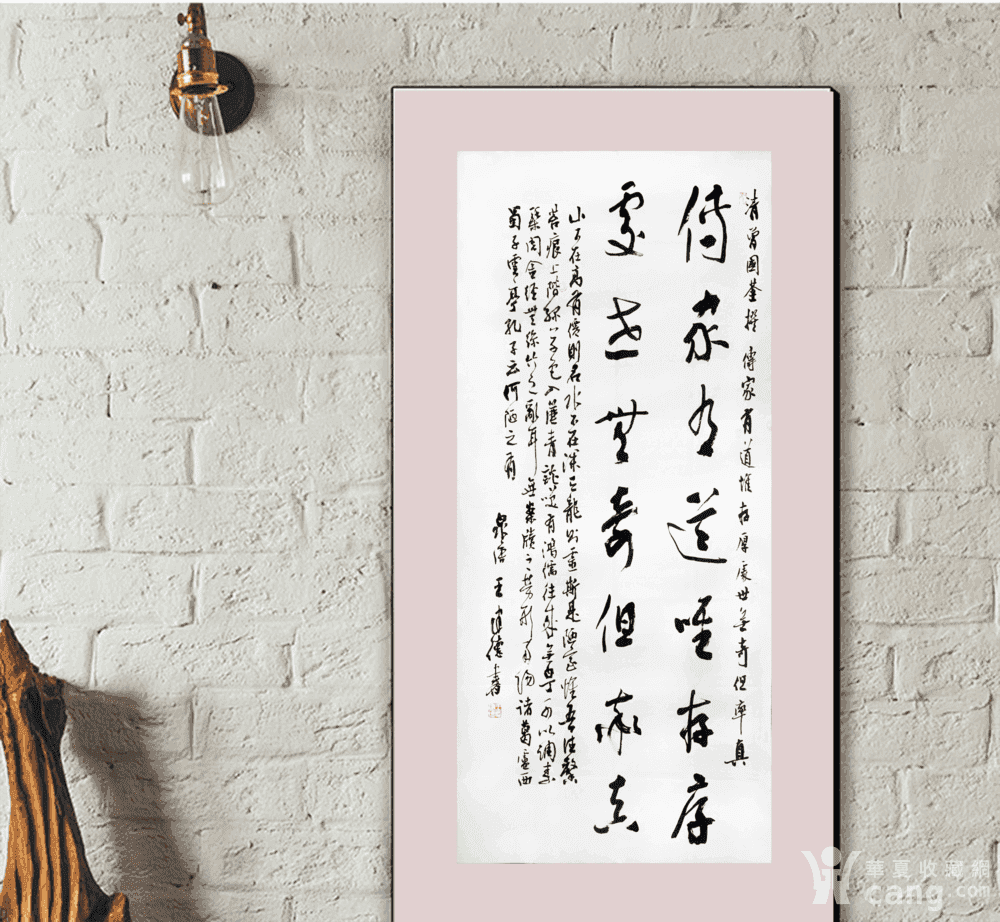 清曾國荃撰 傳家有道惟存厚處世無奇但率真
傳家有道唯存厚
處世無奇但率真
山不在高有僊則名水不在深有龍則靈斯是陋室惟吾德馨
苔痕上階綠草色入簾青談笑有鴻儒往來無白丁可以調素
琴閱金經無絲竹之亂耳無案牘之勞形南陽諸葛廬西
蜀子雲亭孔子云何陋之有
王德書
華夏收藏網
cang.com